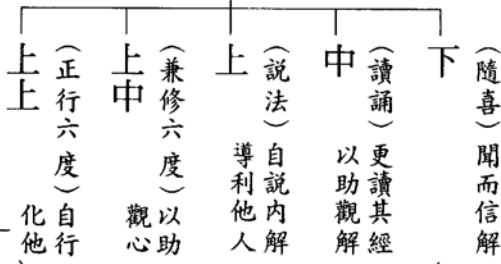 下（隨喜）聞而信解
中（讀誦）更讀其經
以助觀解
上（説法）自説内解
導利他人
上中（兼修六度）以助
觀心
上上（正行六度）自行
化他